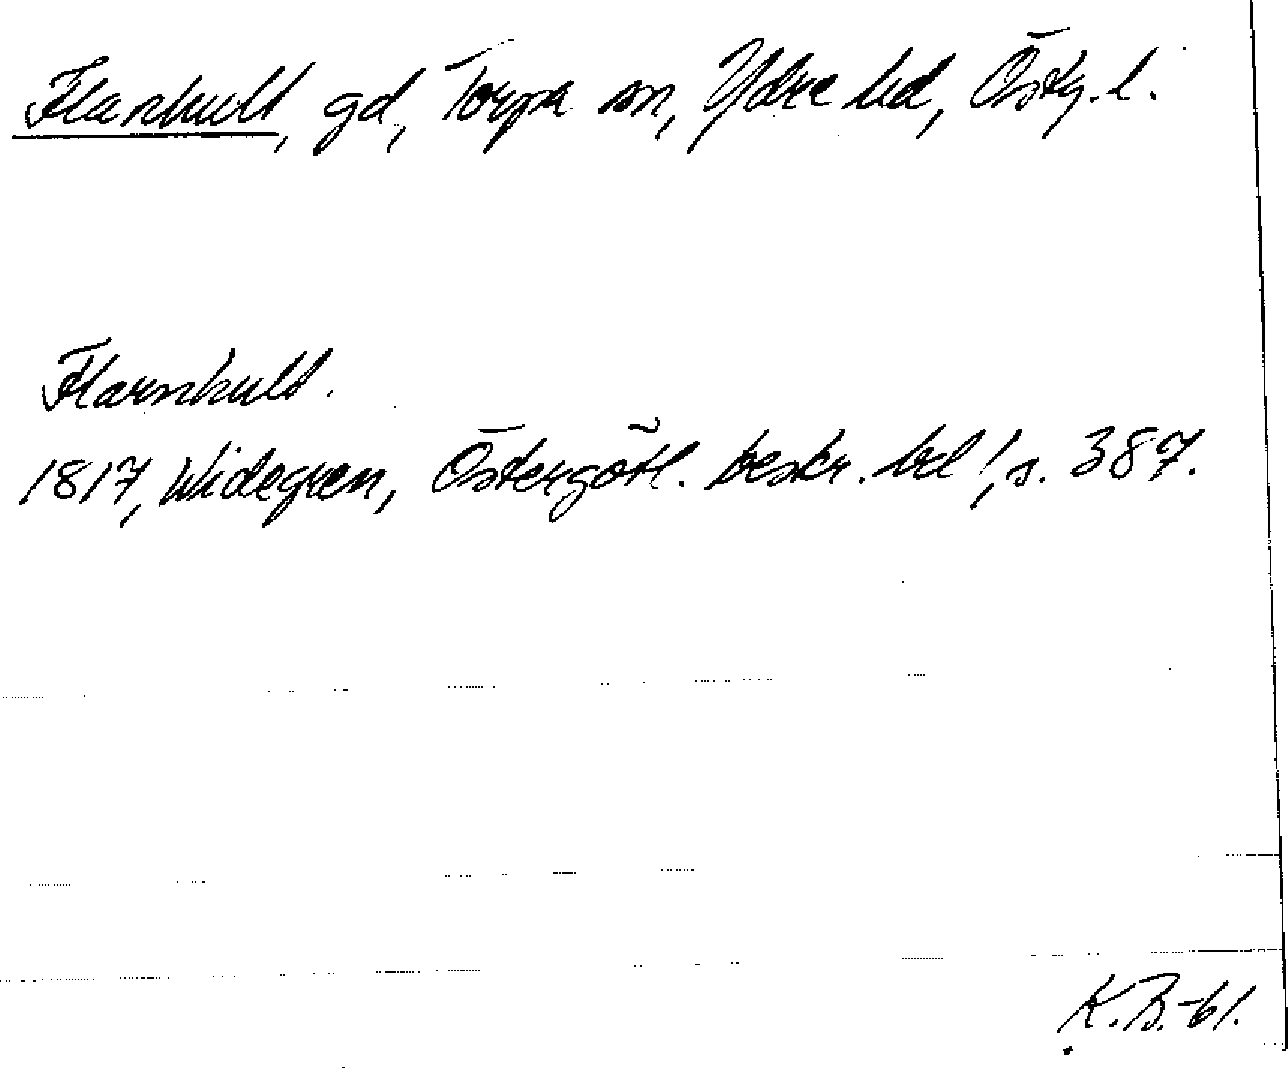 Flankult, gd, Torpa sn, Ydre hd, Östg. l.
Flarnkult.
1817, Widegren, Östergötl. beskr. bd 1, s. 387.
K.B.-61.